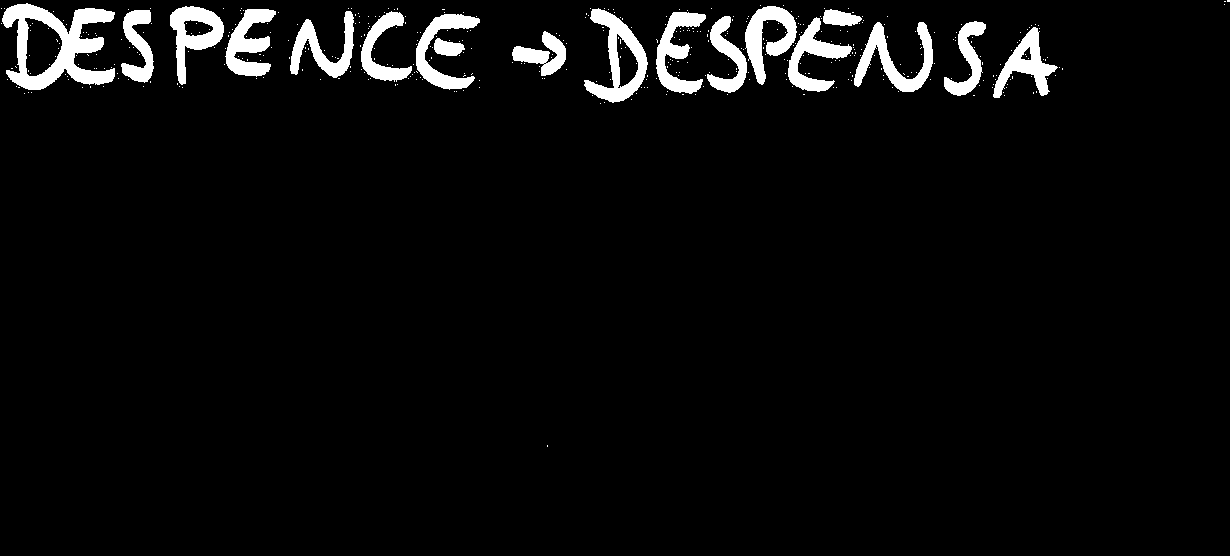 DESPENCE → DESPENSA